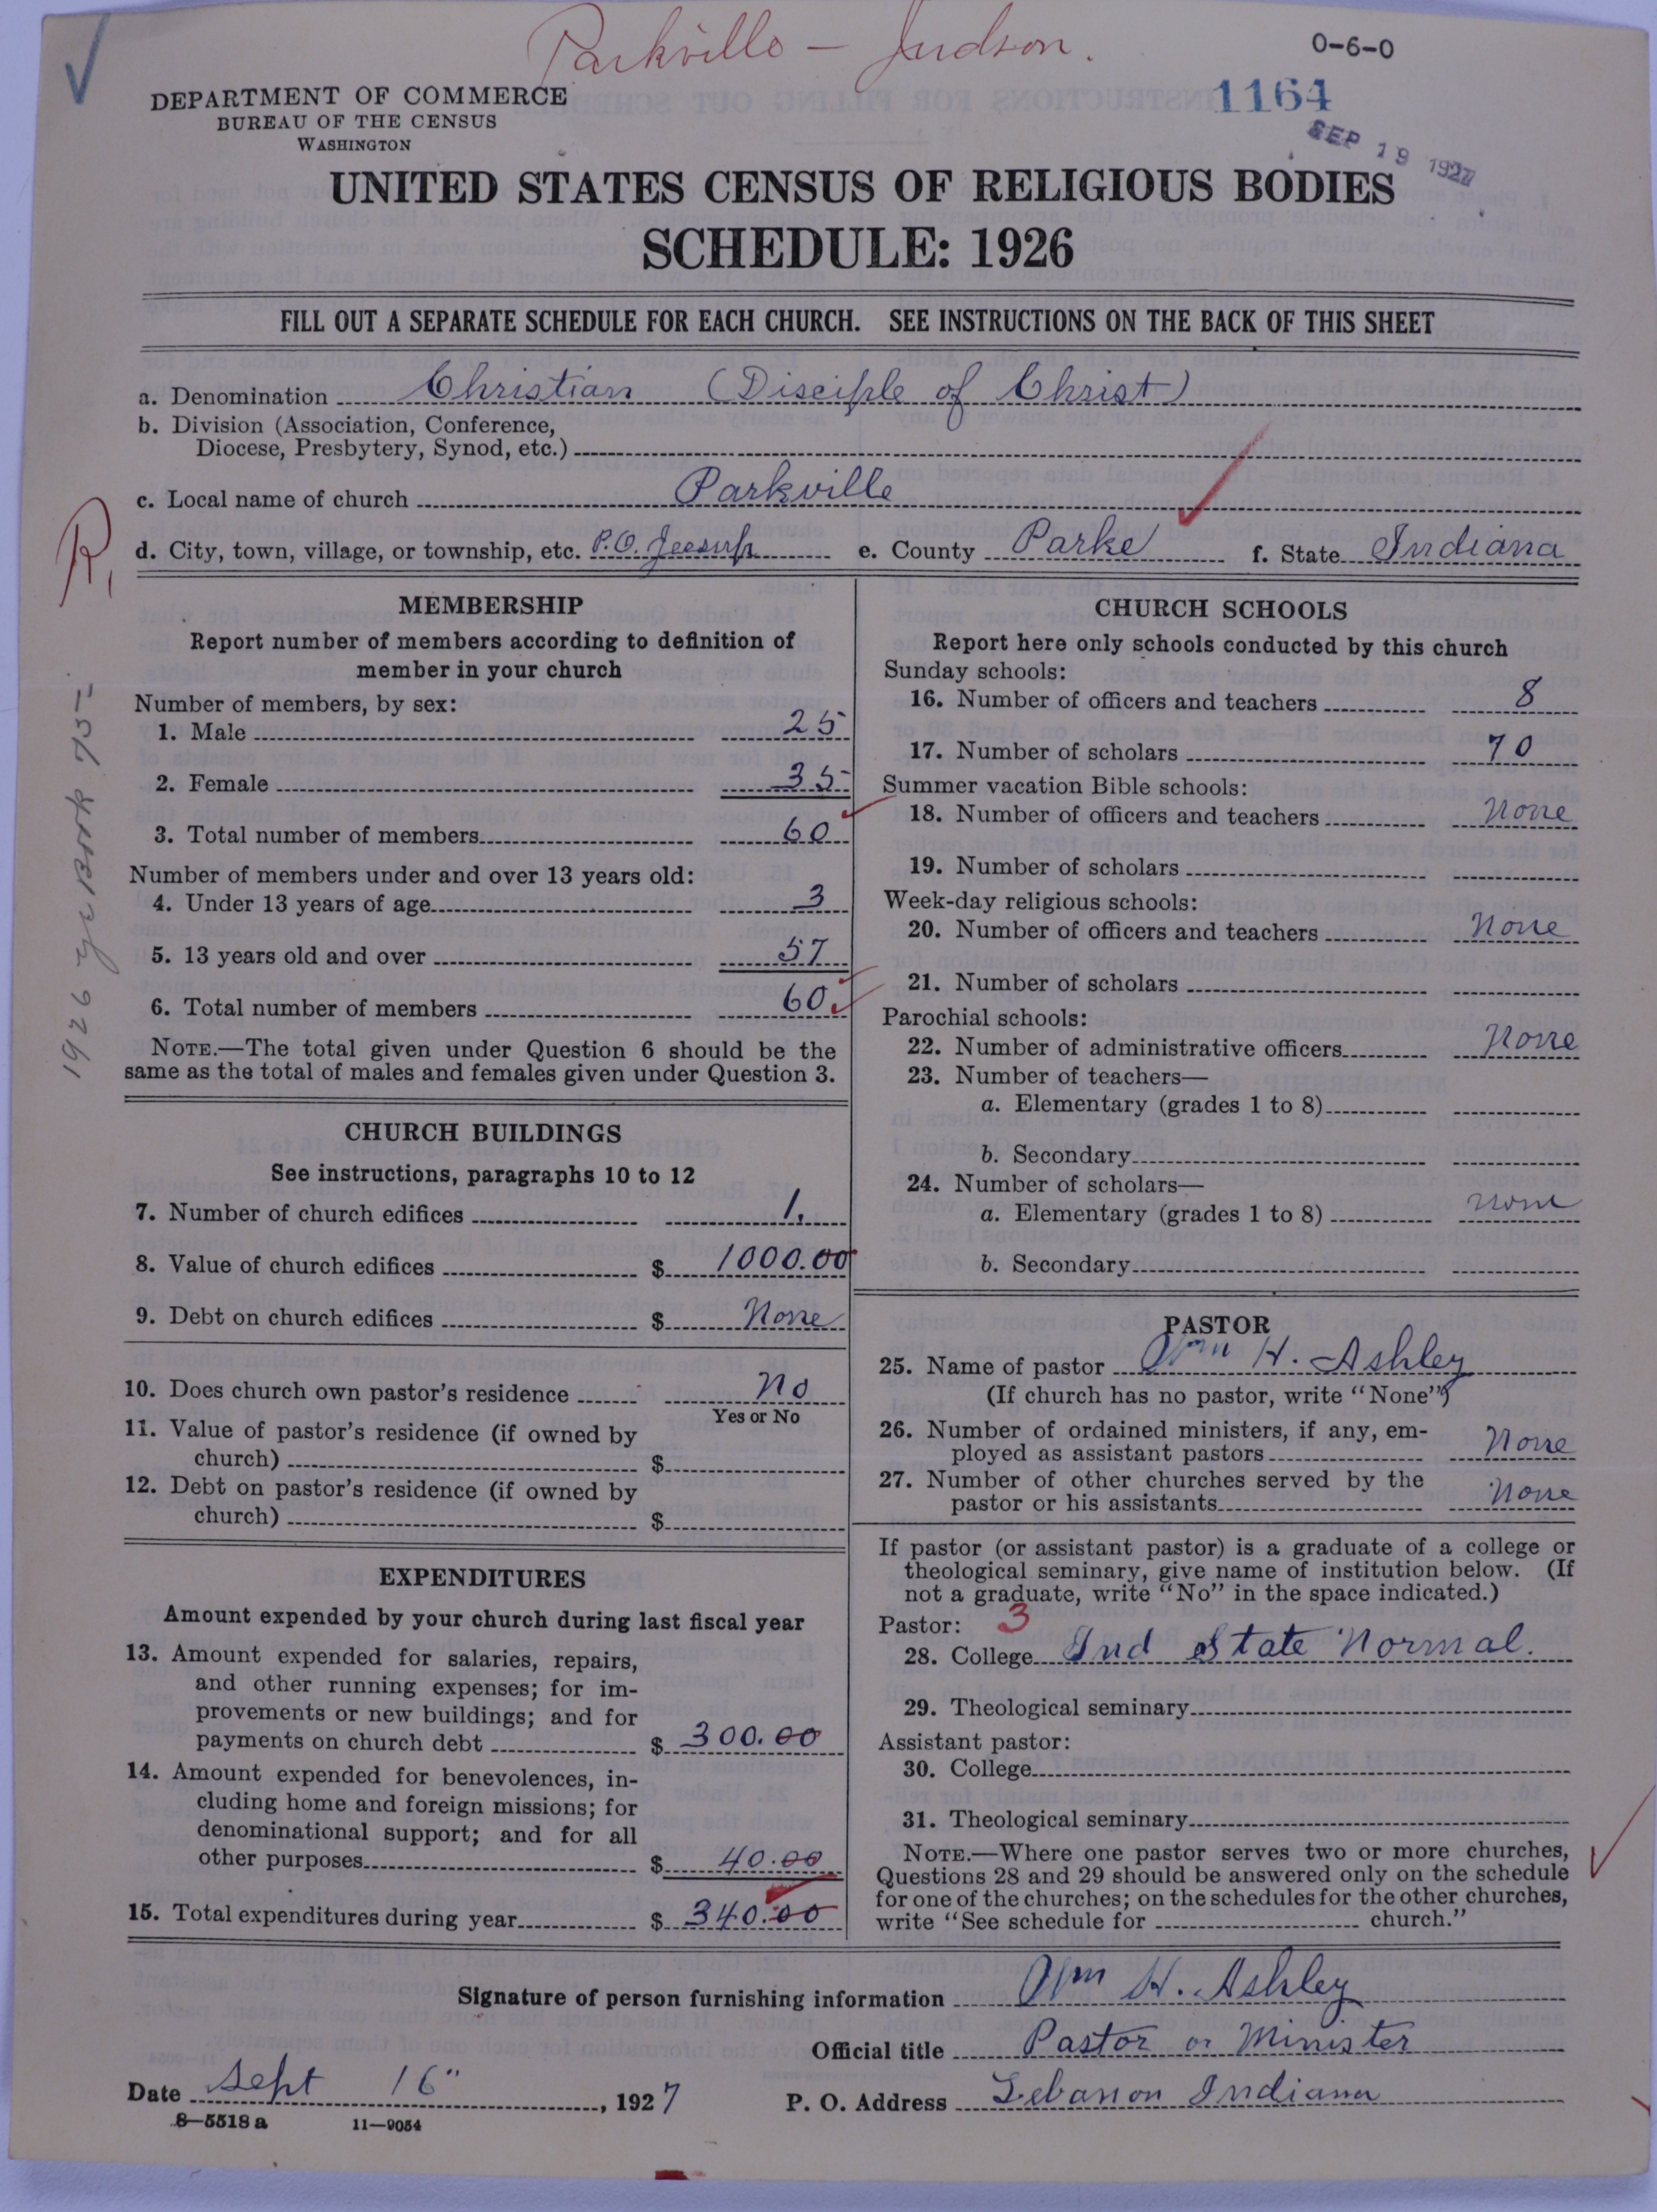 Parkville — Judson.
0-6-0
1164
SEP 19 1927
DEPARTMENT OF COMMERCE
BUREAU OF THE CENSUS
WASHINGTON
UNITED STATES CENSUS OF RELIGIOUS BODIES
SCHEDULE: 1926
FILL OUT A SEPARATE SCHEDULE FOR EACH CHURCH. SEE INSTRUCTIONS ON THE BACK OF THIS SHEET
a. Denomination Christian (Disciple of Christ)
b. Division (Association, Conference,
Diocese, Presbytery, Synod, etc.)
c. Local name of church Parkville
d. City, town, village, or township, etc. P.O. Jessup e. County Parke f. State Indiana
R,
1926 yr Book 75-
MEMBERSHIP
Report number of members according to definition of
member in your church
Number of members, by sex:
1. Male 25
2. Female 35
3. Total number of members 60
Number of members under and over 13 years old:
4. Under 13 years of age 3
5. 13 years old and over 57
6. Total number of members 60
NOTE.—The total given under Question 6 should be the
same as the total of males and females given under Question 3.
CHURCH BUILDINGS
See instructions, paragraphs 10 to 12
7. Number of church edifices 1.
8. Value of church edifices $ 1000.00
9. Debt on church edifices $ None
10. Does church own pastor's residence No
Yes or No
11. Value of pastor's residence (if owned by
church) $
12. Debt on pastor's residence (if owned by
church) $
EXPENDITURES
Amount expended by your church during last fiscal year
13. Amount expended for salaries, repairs,
and other running expenses; for im-
provements or new buildings; and for
payments on church debt $ 300.00
14. Amount expended for benevolences, in-
cluding home and foreign missions; for
denominational support; and for all
other purposes $ 40.00
15. Total expenditures during year $ 340.00
CHURCH SCHOOLS
Report here only schools conducted by this church
Sunday schools:
16. Number of officers and teachers 8
17. Number of scholars 70
Summer vacation Bible schools:
18. Number of officers and teachers None
19. Number of scholars
Week-day religious schools:
20. Number of officers and teachers None
21. Number of scholars
Parochial schools:
22. Number of administrative officers None
23. Number of teachers—
a. Elementary (grades 1 to 8)
b. Secondary
24. Number of scholars—
a. Elementary (grades 1 to 8) none
b. Secondary
PASTOR
25. Name of pastor Wm H. Ashley
(If church has no pastor, write "None")
26. Number of ordained ministers, if any, em-
ployed as assistant pastors None
27. Number of other churches served by the
pastor or his assistants None
If pastor (or assistant pastor) is a graduate of a college or
theological seminary, give name of institution below. (If
not a graduate, write "No" in the space indicated.)
Pastor: 3
28. College Ind State Normal.
29. Theological seminary
Assistant pastor:
30. College
31. Theological seminary
NOTE.—Where one pastor serves two or more churches,
Questions 28 and 29 should be answered only on the schedule
for one of the churches; on the schedules for the other churches,
write "See schedule for church."
Signature of person furnishing information Wm H. Ashley
Official title Pastor or Minister
Date Sept 16", 1927 P. O. Address Lebanon Indiana
8—5518 a 11—9054